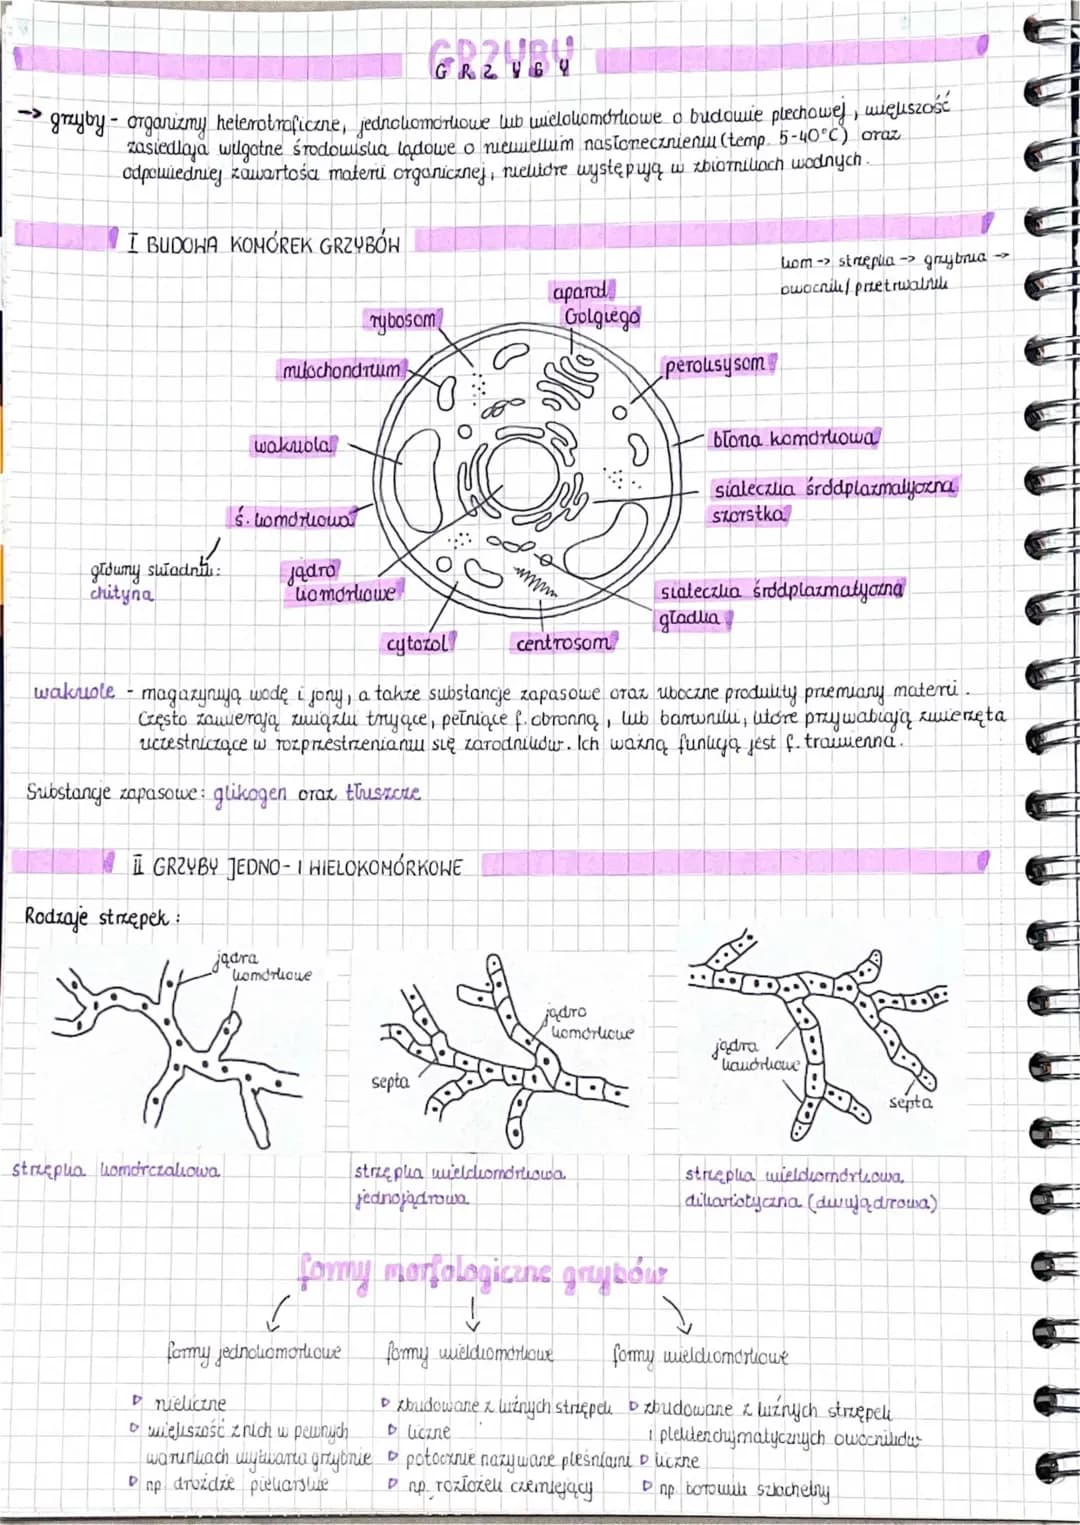 GRZYBY
GRZYBY
-> grzyby - organizmy heterotroficzne, jednokomórkowe lub wielokomórkowe o budowie plechowej, większość
zasiedlają wilgotne środowiska lądowe o niewielkim nasłonecznieniu (temp. 5-40°C) oraz
odpowiedniej zawartości materii organicznej, niektóre występują w zbiornikach wodnych.
I BUDOWA KOMÓREK GRZYBÓW
kom -> strzępka -> grzybnia ->
owocnik/przetrwalnik
aparat
Golgiego
rybosom
mitochondrium
peroksysom
wakuola
błona komórkowa
siateczka śródplazmatyczna
szorstka
ś. komórkowa
główny składnik:
chityna
jądro
komórkowe
siateczka śródplazmatyczna
gładka
cytozol
centrosom
wakuole - magazynują wodę i jony, a także substancje zapasowe oraz uboczne produkty przemiany materii.
Często zawierają związki trujące, pełniące f. obronną, lub barwniki, które przywabiają zwierzęta
uczestniczące w rozprzestrzenianiu się zarodników. Ich ważną funkcją jest f. trawienna.
Substancje zapasowe: glikogen oraz tłuszcze
II GRZYBY JEDNO- I WIELOKOMÓRKOWE
Rodzaje strzępek:
jądra
komórkowe
jądro
komórkowe
septa
jądra
komórkowe
septa
strzępka komórczakowa
strzępka wielokomórkowa
jednojądrowa
strzępka wielokomórkowa
dikariotyczna (dwujądrowa)
formy morfologiczne grzybów
formy jednokomórkowe
▷ nieliczne
▷ większość z nich w pewnych
warunkach wytwarza grzybnie
▷ np. drożdże piekarskie
formy wielokomórkowe
▷ zbudowane z luźnych strzępek
▷ liczne
▷ potocznie nazywane pleśniami
▷ np. rozłożek czerniejący
formy wielokomórkowe
▷ zbudowane z luźnych strzępek
i plektenchymatycznych owocników
▷ liczne
▷ np borowik szlachetny